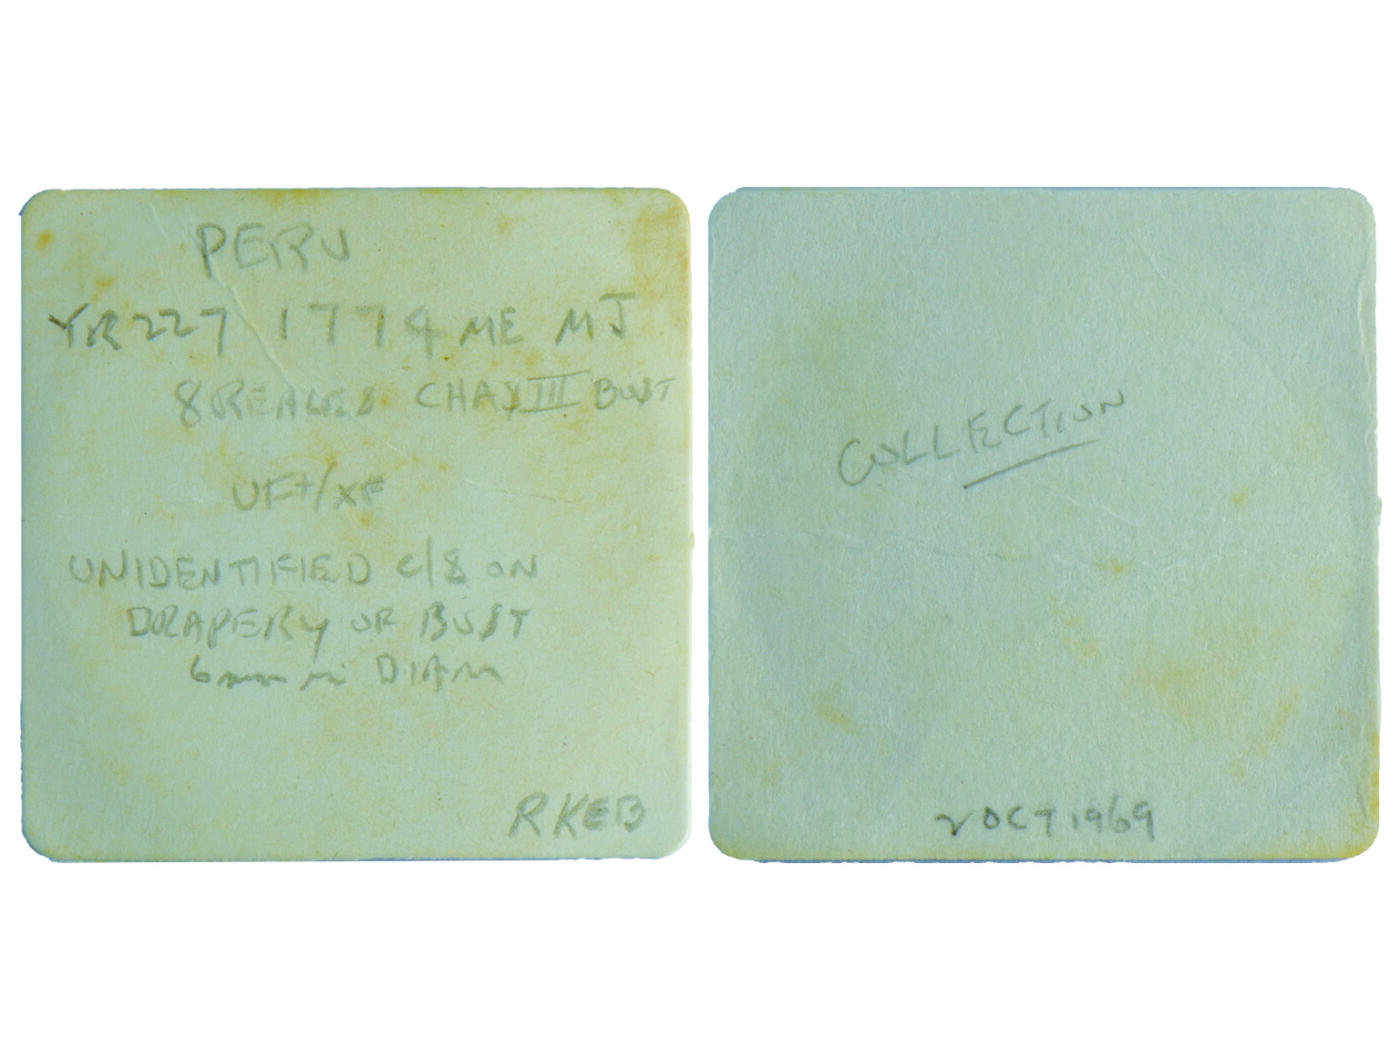 PERU
YR227 1774 ME MJ
8 REALES CHAS III BUST
VF+/XF
UNIDENTIFIED c/s ON
DRAPERY OF BUST
6mm in DIAM
RKEB
COLLECTION
2 OCT 1969